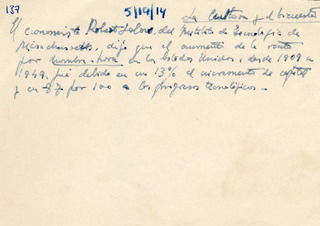 137
5/19/14
La Cultura y el bienestar
El economista Robert Solow, del Instituto de Tecnología de
Massachusetts, dijo que el aumento de la renta
por hombre-hora en los Estados Unidos, desde 1909 a
1949, fué debido en un 13% al incremento de capital
y en 87 por 100 a los progresos tecnológicos.-